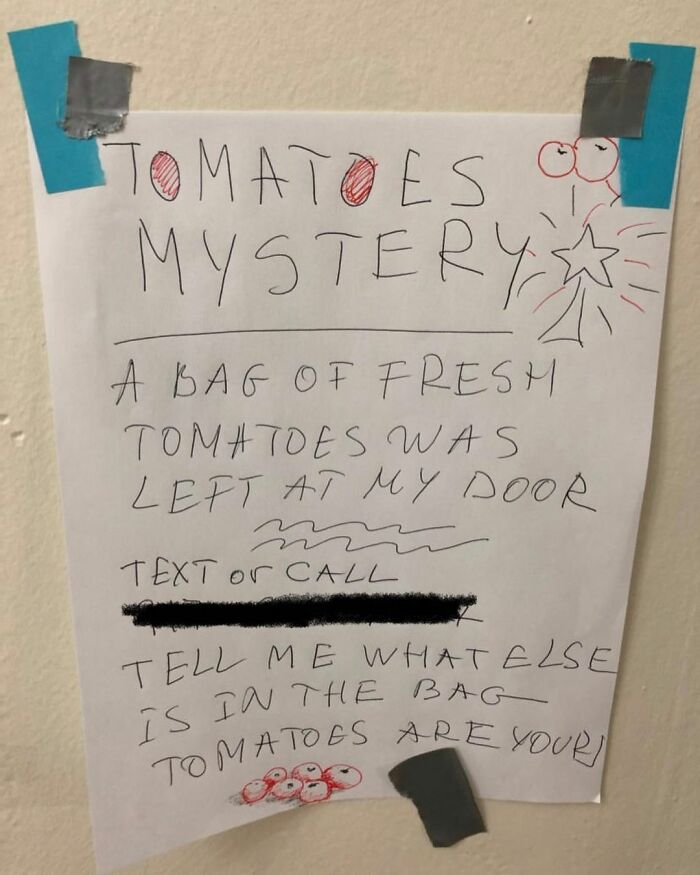 TOMATOES
MYSTERY
A BAG OF FRESH
TOMATOES WAS
LEFT AT MY DOOR
TEXT or CALL
TELL ME WHAT ELSE
IS IN THE BAG
TOMATOES ARE YOURS